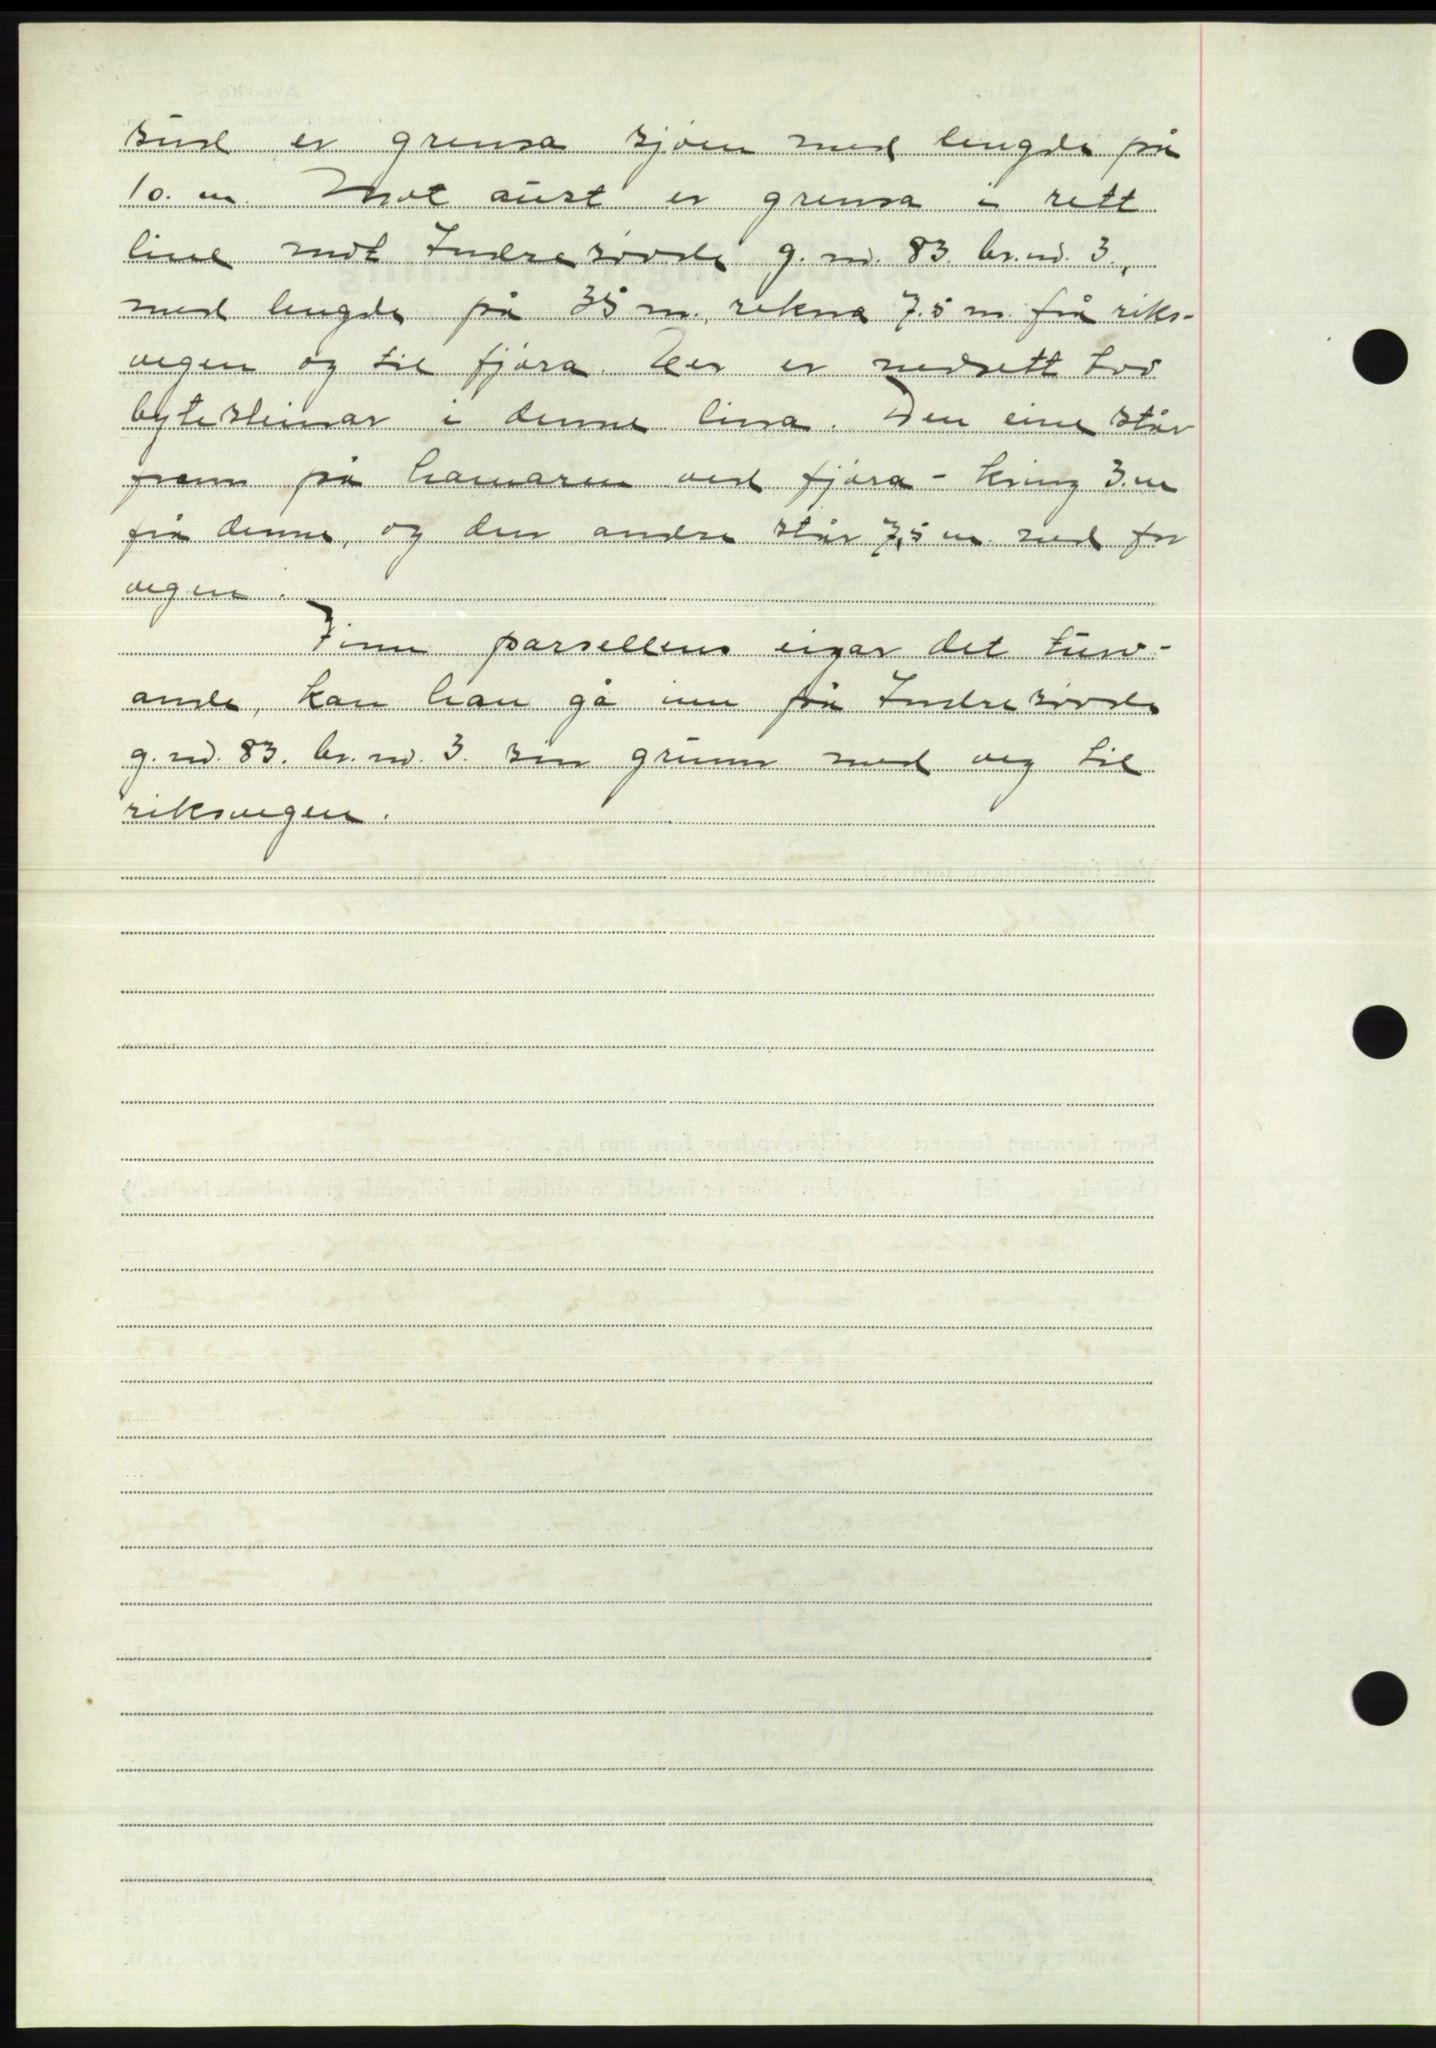 sud er grensa sjøen med lengde på
10. m. Mot aust er grensa i rett
line mot Indresøvde g. nr. 83. br. nr. 3.,
med lengde på 35 m. rekna 7.5 m. frå riks-
vegen og til fjøra. Her er nedsett two
bytesteinar i denne lina. Den eine står
fram på hamaren ved fjøra - kring 3. m
frå denne, og den andre står 7,5 m. ned for
vegen.
Finn parsellens eigar det turv-
ande, kan han gå inn på Indresøvde
g. nr. 83. br. nr. 3. sin grunn med veg til
riksvegen.